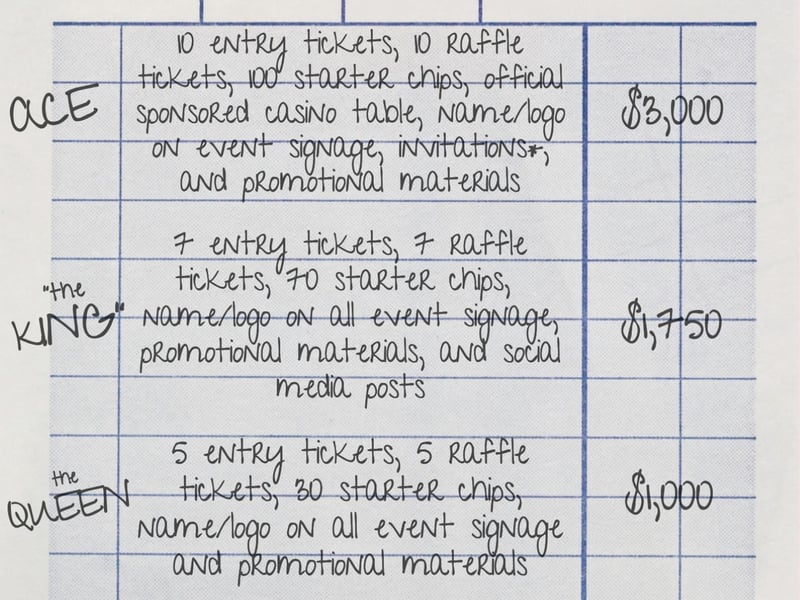 ACE
10 entry tickets, 10 raffle
tickets, 100 starter chips, official
sponsored casino table, name/logo
on event signage, invitations*,
and promotional materials
$3,000
"the
KING"
7 entry tickets, 7 raffle
tickets, 70 starter chips,
name/logo on all event signage,
promotional materials, and social
media posts
$1,750
the
QUEEN
5 entry tickets, 5 raffle
tickets, 30 starter chips,
name/logo on all event signage
and promotional materials
$1,000